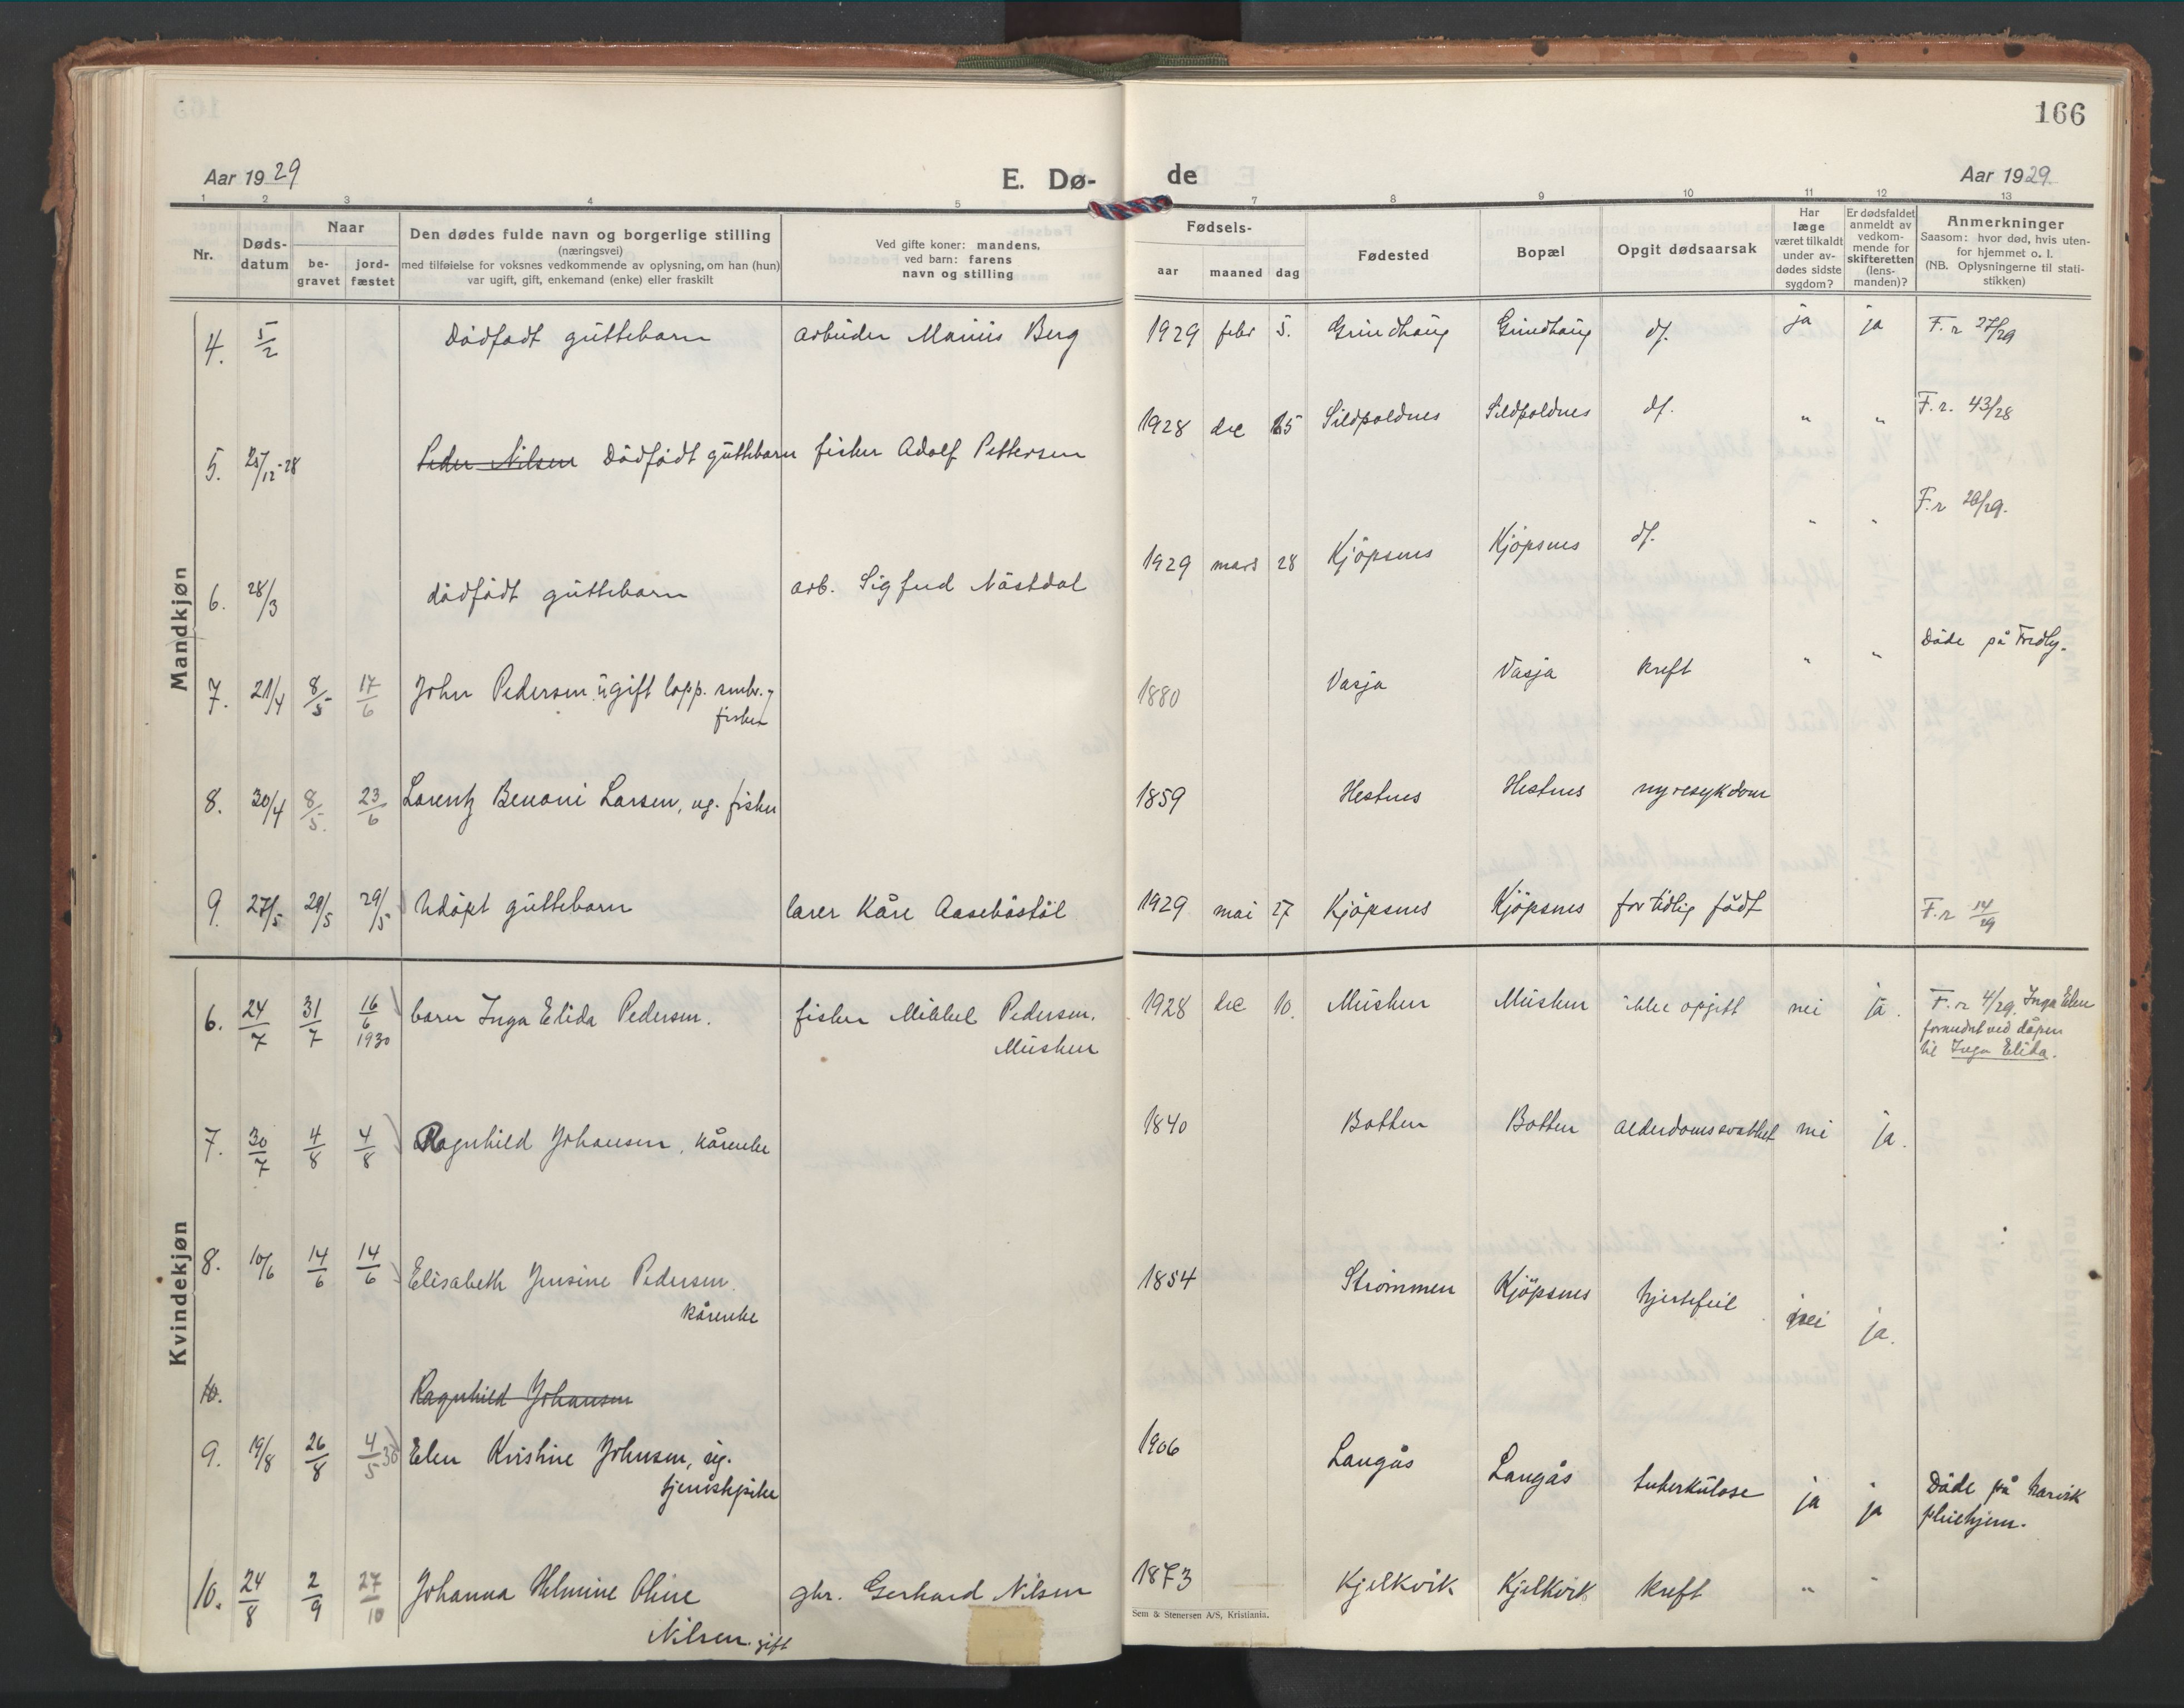 166
Aar 1929
E. Dø-
de
Aar 1929.
1 2 3 4 5 7 8 9 10 11 12 13
Nr.
Døds-
datum
Naar
be-
gravet
jord-
fæstet
Den dødes fulde navn og borgerlige stilling
(næringsvei)
med tilføielse for voksnes vedkommende av oplysning, om han (hun)
var ugift, gift, enkemand (enke) eller fraskilt
Ved gifte koner: mandens,
ved barn: farens
navn og stilling
Fødsels-
aar
maaned
dag
Fødested
Bopæl
Opgit dødsaarsak
Har
læge
været tilkaldt
under av-
dødes sidste
sygdom?
Er dødsfaldet
anmeldt av
vedkom-
mende for
skifteretten
(lens-
manden)?
Anmerkninger
Saasom: hvor død, hvis uten-
for hjemmet o. l.
(NB. Oplysningerne til stati-
stikken)
Mandkjøn
4. 5/2 Dödfödt guttebarn arbeider Marius Berg 1929 febr 5. Grindhaug Grindhaug df. ja ja F. r 27/29
5. 25/12-28 Peder Nilsen Dödfödt guttebarn fisker Adolf Pettersen 1928 dec 25 Sildpoldnes Sildpoldnes df. " " F. r. 43/28
6. 28/3 dödfödt guttebarn arb. Sigfred Nästdal 1929 mars 28 Kjöpsnes Kjöpsnes df. " " F. r 20/29.
7. 21/4 8/5 17/6 John Pedersen ugift lapp. smbr. &
fisker
1880 Vasja Vasja kreft " " Döde på Fredly.
8. 30/4 8/5. 23/6 Lorentz Benoni Larsen, ug. fisker 1859 Hestnes Hestnes nyresykdom
9. 27/5 29/5 29/5 Udöpt guttebarn lærer Kåre Aaseböstöl 1929 mai 27 Kjöpsnes Kjöpsnes for tidlig födt F. r 14/29
Kvindekjøn
6. 24/7 31/7 16/6 1930 barn Inga Elida Pedersen. fisker Mikkel Pedersen,
Musken
1928 dec 10. Musken Musken ikke opgitt nei ja. F. r 4/29. Inga Elen
forandret ved dåpen
til Inga Elida.
7. 30/7 4/8 4/8 Ragnhild Johansen, kårenke 1840 Botten Botten alderdomssvakhet nei ja.
8. 10/6 14/6 14/6 Elisabeth Jensine Pedersen.
kårenke
1854 Strömmen Kjöpsnes hjertefeil nei ja.
10. Ragnhild Johansen
9. 19/8 26/8 4/5 30 Elen Kristine Johnsen, ug.
tjenestepike
1906 Langås Langås tuberkulose ja ja Döde på Narvik
pleiehjem.
10. 24/8 2/9 27/10 Johanna Helmine Oline
Nilsen. gift
gbr. Gerhard Nilsen 1873 Kjelkvik Kjelkvik kreft " "
Sem & Stenersen A/S, Kristiania.